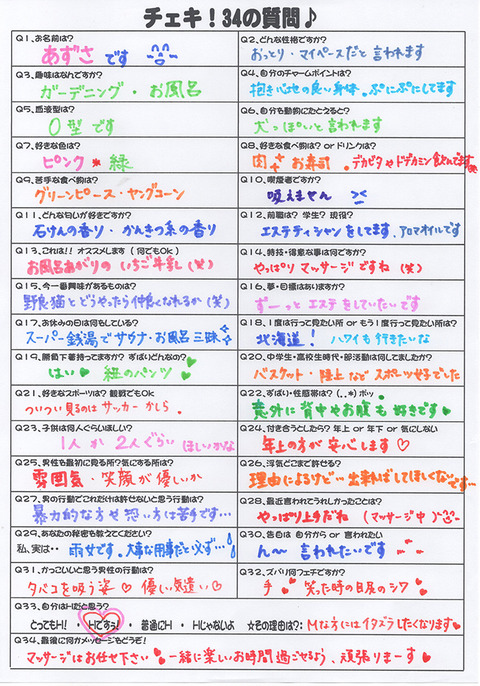 チェキ！34の質問♪
Q1、お名前は？
あずさ です
Q2、どんな性格ですか？
おっとり・マイペースだと 言われます
Q3、趣味はなんですか？
ガーデニング・お風呂
Q4、自分のチャームポイントは？
抱き心地の良い身体。ぷにぷにしてます
Q5、血液型は？
O型 です
Q6、自分も動物にたとえると？
犬っぽいと言われます
Q7、好きな色は？
ピンク 緑
Q8、好きな食べ物は？ or ドリンクは？
肉 お寿司 デカビタやドデカミン飲んでます
Q9、苦手な食べ物は？
グリーンピース・ヤングコーン
Q10、喫煙者ですか？
吸えません
Q11、どんな匂いが好きですか？
石けんの香り・かんきつ系の香り
Q12、前職は？ 学生？ 現役？
エステティシャンをしてます、アロマオイルです
Q13、これは！！ オススメします（何でもOk）
お風呂あがりの いちご牛乳（笑）
Q14、特技・得意な事は何ですか？
やっぱり マッサージですね（笑）
Q15、今一番興味があるものは？
野良猫とどうやったら仲良くなれるか（笑）
Q16、夢・目標はありますか？
ずーっと エステをしていたいです
Q17、お休みの日は何もしている？
スーパー銭湯でサウナ・お風呂三昧
Q18、1度は行って見たい所 or もう1度行って見たい所は？
北海道！ ハワイも行きたいな
Q19、勝負下着持ってますか？ ずばりどんなの？
はい 緑のパンツ
Q20、中学生・高校生時代・部活動は何してましたか？
バスケット・陸上など スポーツ女子でした
Q21、好きなスポーツは？ 観戦でもOK
ついつい見るのは サッカー かしら。
Q22、ずばい・性感帯は？（..*）ポッ
意外に 背中やお腹も 好きです
Q23、子供は何人ぐらいほしい？
1人 か 2人ぐらい ほしいかな
Q24、付き合うとしたら？ 年上 or 年下 or 気にしない
年上の方が 安心します♡
Q25、男性も最初に見る所？気にする所は？
雰囲気・笑顔が 優しいか
Q26、浮気どこまで許せる？
理由によるけど… 出来ればしてほしくないです…
Q27、男の行動でこれだけは許せないと思う行動は？
暴力的な方や 恐い方は苦手です…
Q28、最近言われてうれしかったことは？
やっぱり上手だね（マッサージ中）
Q29、あなたの秘密も教えてください？
私、実は・・ 雨女です。大事な用事だと必ず…
Q30、告白は 自分から or 言われたい
ん〜 言われたいです
Q31、かっこいいと思う男性の行動は？
タバコを吸う姿♡ 優しい気遣い♡
Q32、ズバリ何フェチですか？
手 笑った時の目尻のシワ
Q33、自分はHだと思う？
とってもH！ ・ Hですぅ！ ・ 普通にH ・ Hじゃないよ ☆その理由は？： Mな方にはイタズラしたくなります
Q34、最後に何かメッセージもどうぞ！
マッサージはお任せ下さい 一緒に楽しいお時間 過ごせるよう、頑張りまーす